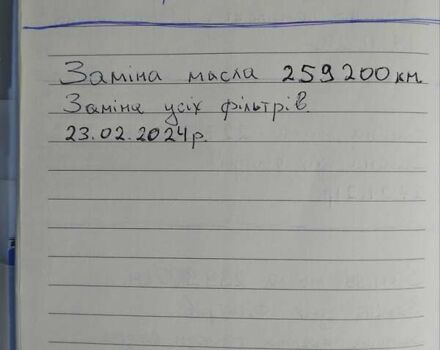 Заміна масла 259200км.
Заміна усіх фільтрів.
23.02.2024р.